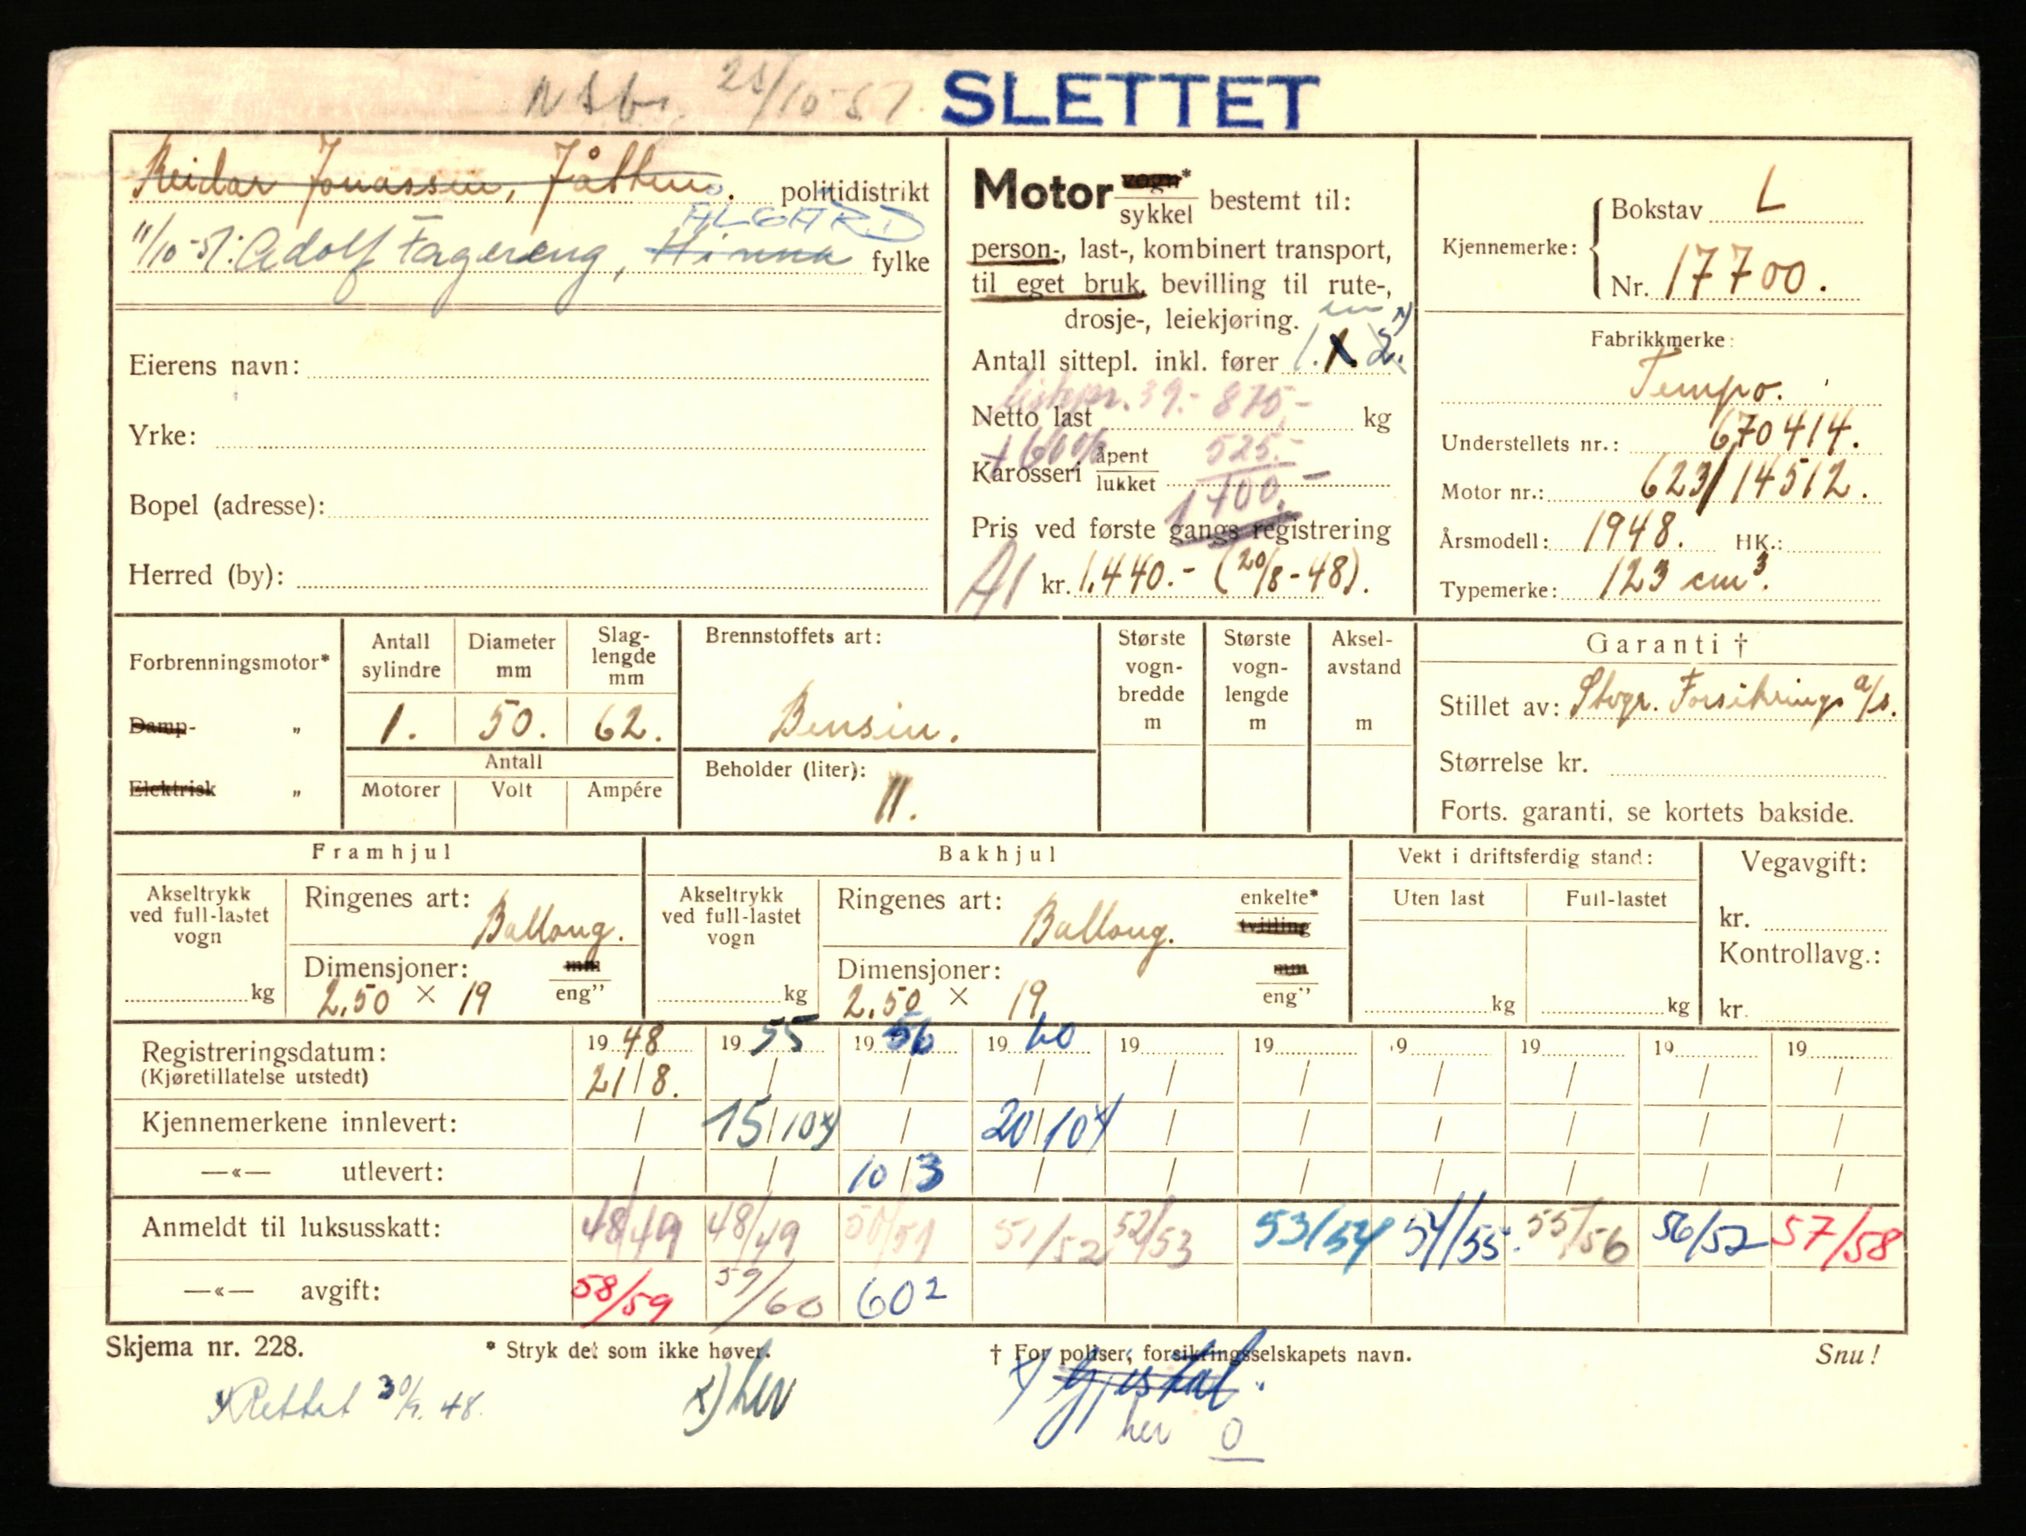 25/10-57. SLETTET
Reidar Jonassen, Jåtten. politidistrikt
ÅLGÅRD
11/10-57: Adolf Fagereng, Hinna fylke
Eierens navn:
Yrke:
Bopel (adresse):
Herred (by):
Motor vogn* sykkel bestemt til:
person-, last-, kombinert transport,
til eget bruk, bevilling til rute-,
drosje-, leiekjøring. en
Antall sittepl. inkl. fører 1. 2.
Listepr. 39.- 875,-
Netto last kg
+ 60% 525.-
Karosseri åpent lukket
1400.-
Pris ved første gangs registrering
A1 kr. 1.440.- (20/8-48).
Kjennemerke: Bokstav L
Nr. 17700.
Fabrikkmerke:
Tempo.
Understellets nr.: 670414.
Motor nr.: 623/14512.
Årsmodell: 1948. HK.:
Typemerke: 123 cm³.
Forbrenningsmotor*
Damp- „
Elektrisk „
Antall sylindre
Diameter mm
Slag-lengde mm
1. 50. 62.
Antall
Motorer Volt Ampére
Brennstoffets art:
Bensin.
Beholder (liter):
11.
Største vogn-bredde m
Største vogn-lengde m
Aksel-avstand m
Garanti †
Stillet av: Stvgr. Forsikrings a/s.
Størrelse kr.
Forts. garanti, se kortets bakside.
Framhjul
Akseltrykk ved full-lastet vogn
kg
Ringenes art: Ballong.
Dimensjoner: mm
2.50 × 19 eng"
Bakhjul
Akseltrykk ved full-lastet vogn
kg
Ringenes art: Ballong. enkelte* tvilling
Dimensjoner: mm
2.50 × 19 eng"
Vekt i driftsferdig stand:
Uten last Full-lastet
kg kg
Vegavgift:
kr.
Kontrollavg.:
kr.
Registreringsdatum: 19 48 19 55 19 56 19 60 19 19 19 19 19 19
(Kjøretillatelse utstedt) 21/8. / / / / / / / / /
Kjennemerkene innlevert: / 15/10 x) / 20/10 x) / / / / / /
—«— utlevert: / / 10/3 / / / / / / /
Anmeldt til luksusskatt: 48/49 48/49 50/51 51/52 52/53 53/54 54/55. 55/56 56/57 57/58
—«— avgift: 58/59 59/60 60 2
Skjema nr. 228. * Stryk det som ikke høver. † For poliser, forsikringsselskapets navn. Snu!
x) Rettet 30/9. 48. x) her x) Gjestal.
her 0